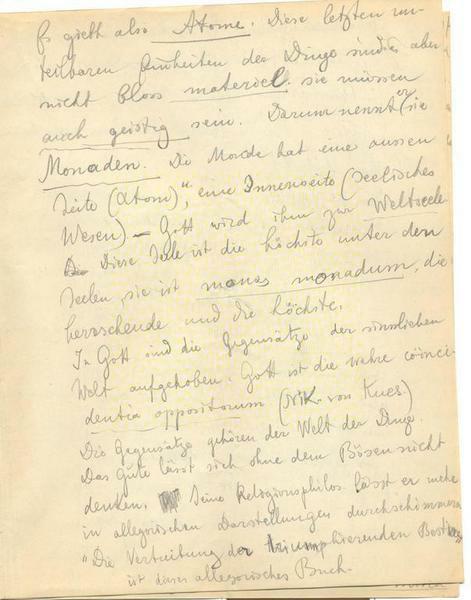 Es giebt also Atome. Diese letzten un-
teilbaren Einheiten der Dinge sind es aber
nicht bloss materiel. sie müssen
auch geistig sein. Darum nennt er sie
Monaden. Die Monade hat eine aussen
Seite (Atom), eine Innenseite (seelisches
Wesen) – Gott wird ihm zur Weltseele
Diese Seele ist die höchste unter den
Seelen, sie ist monas monadum, die
herrschende und die höchste.
In Gott sind die Gegensätze der sinnlichen
Welt aufgehoben. Gott ist die wahre coinci-
dentia oppositorum (Nik. von Kues.)
Die Gegensätze gehören der Welt der Dinge.
Das Gute lässt sich ohne dem Bösen nicht
denken. Seine Religionsphilos. lässt er mehr
in allegorischen Darstellungen durchschimmern
"Die Vertreibung der triumphierenden Bestie"
ist dieses allegorisches Buch.